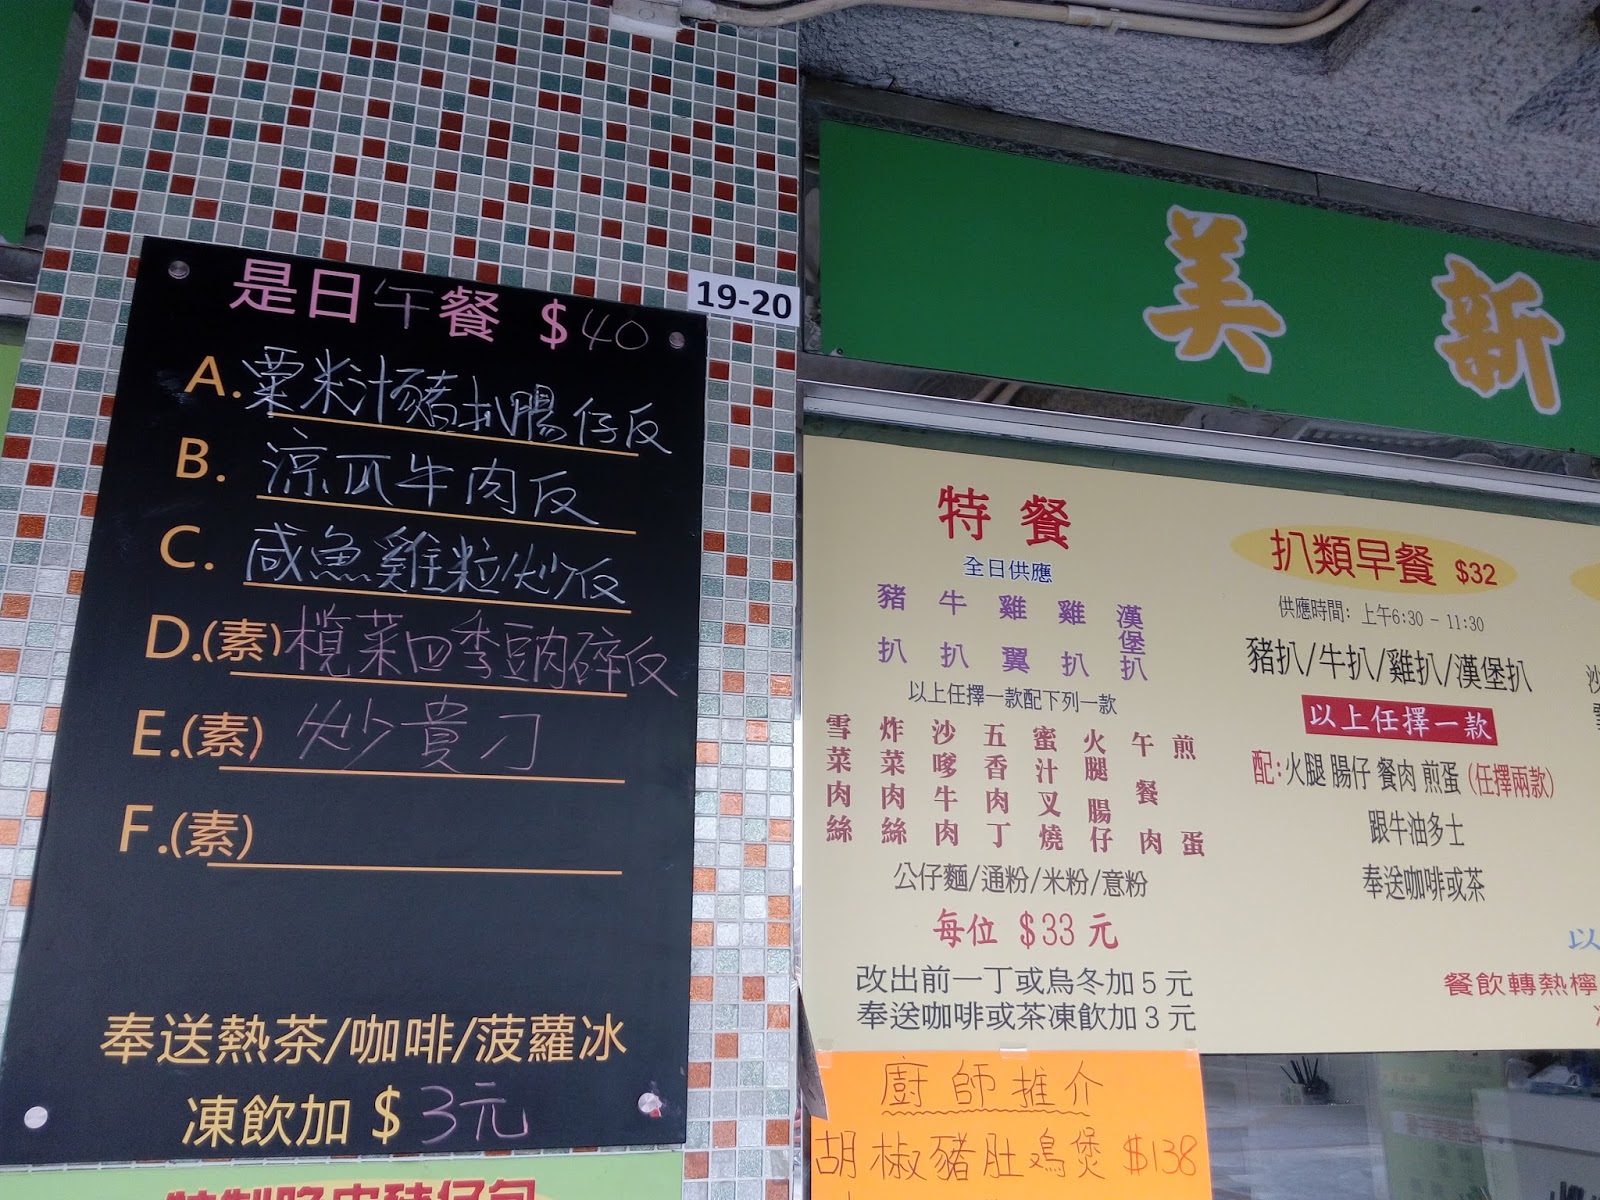 是日午餐 $40
19-20
A.粟米汁豬扒腸仔反
B.涼瓜牛肉反
C.咸魚雞粒炒反
D.(素)欖菜四季豆肉碎反
E.(素)炒貴刁
F.(素)
奉送熱茶/咖啡/菠蘿冰
凍飲加 $ 3元
美 新
特餐
全日供應
豬扒 牛扒 雞翼 雞扒 漢堡扒
以上任擇一款配下列一款
雪菜肉絲 炸菜肉絲 沙嗲牛肉 五香肉丁 蜜汁叉燒 火腿腸仔 午餐肉 煎蛋
公仔麵/通粉/米粉/意粉
每位 $33 元
改出前一丁或烏冬加 5 元
奉送咖啡或茶凍飲加 3 元
扒類早餐 $32
供應時間: 上午6:30 - 11:30
豬扒/牛扒/雞扒/漢堡扒
以上任擇一款
配:火腿 腸仔 餐肉 煎蛋 (任擇兩款)
跟牛油多士
奉送咖啡或茶
以
餐飲轉熱檸
廚師推介
胡椒豬肚鳮煲 $138